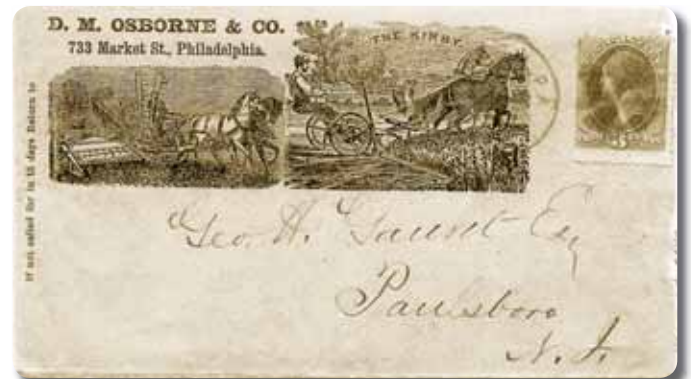 D. M. OSBORNE & CO.
733 Market St., Philadelphia.
THE KIRBY
If not called for in 15 days Return to
Geo. H. Gaunt Esq
Paulsboro
N. J.